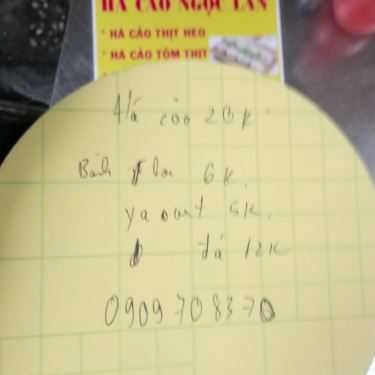 HÁ CẢO NGỌC LAN
* HÁ CẢO THỊT HEO
* HÁ CẢO TÔM THỊT
Há cảo 20k
Bánh flan 6k
yaourt 5k
đá 12k
0909 708370